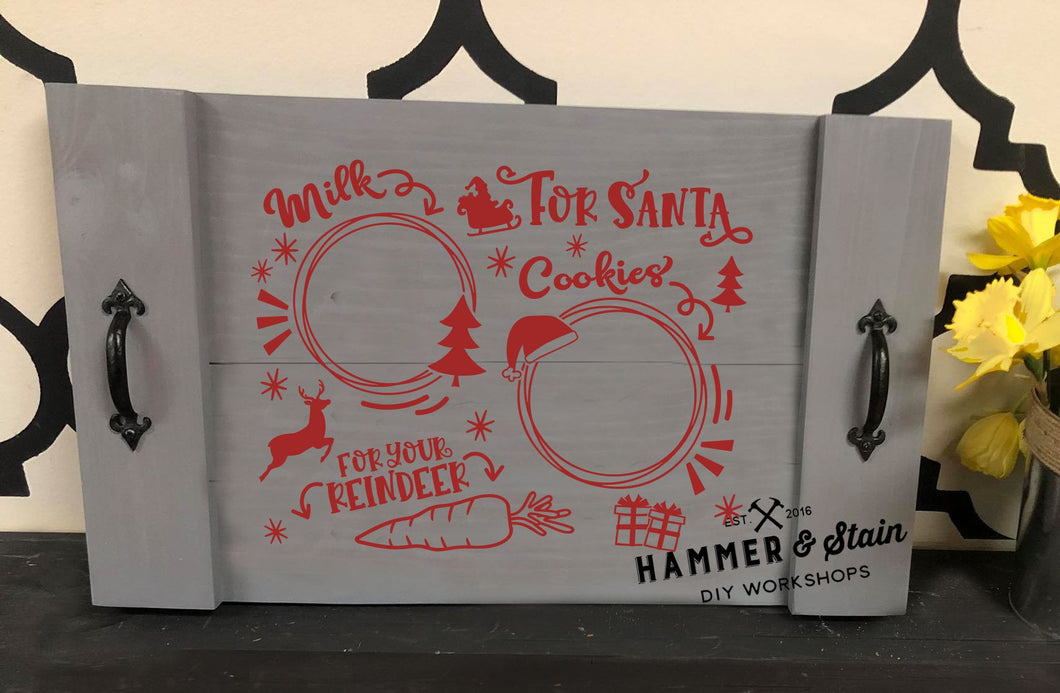 Milk
FOR SANTA
Cookies
FOR YOUR
REINDEER
EST. 2016
HAMMER & Stain
DIY WORKSHOPS